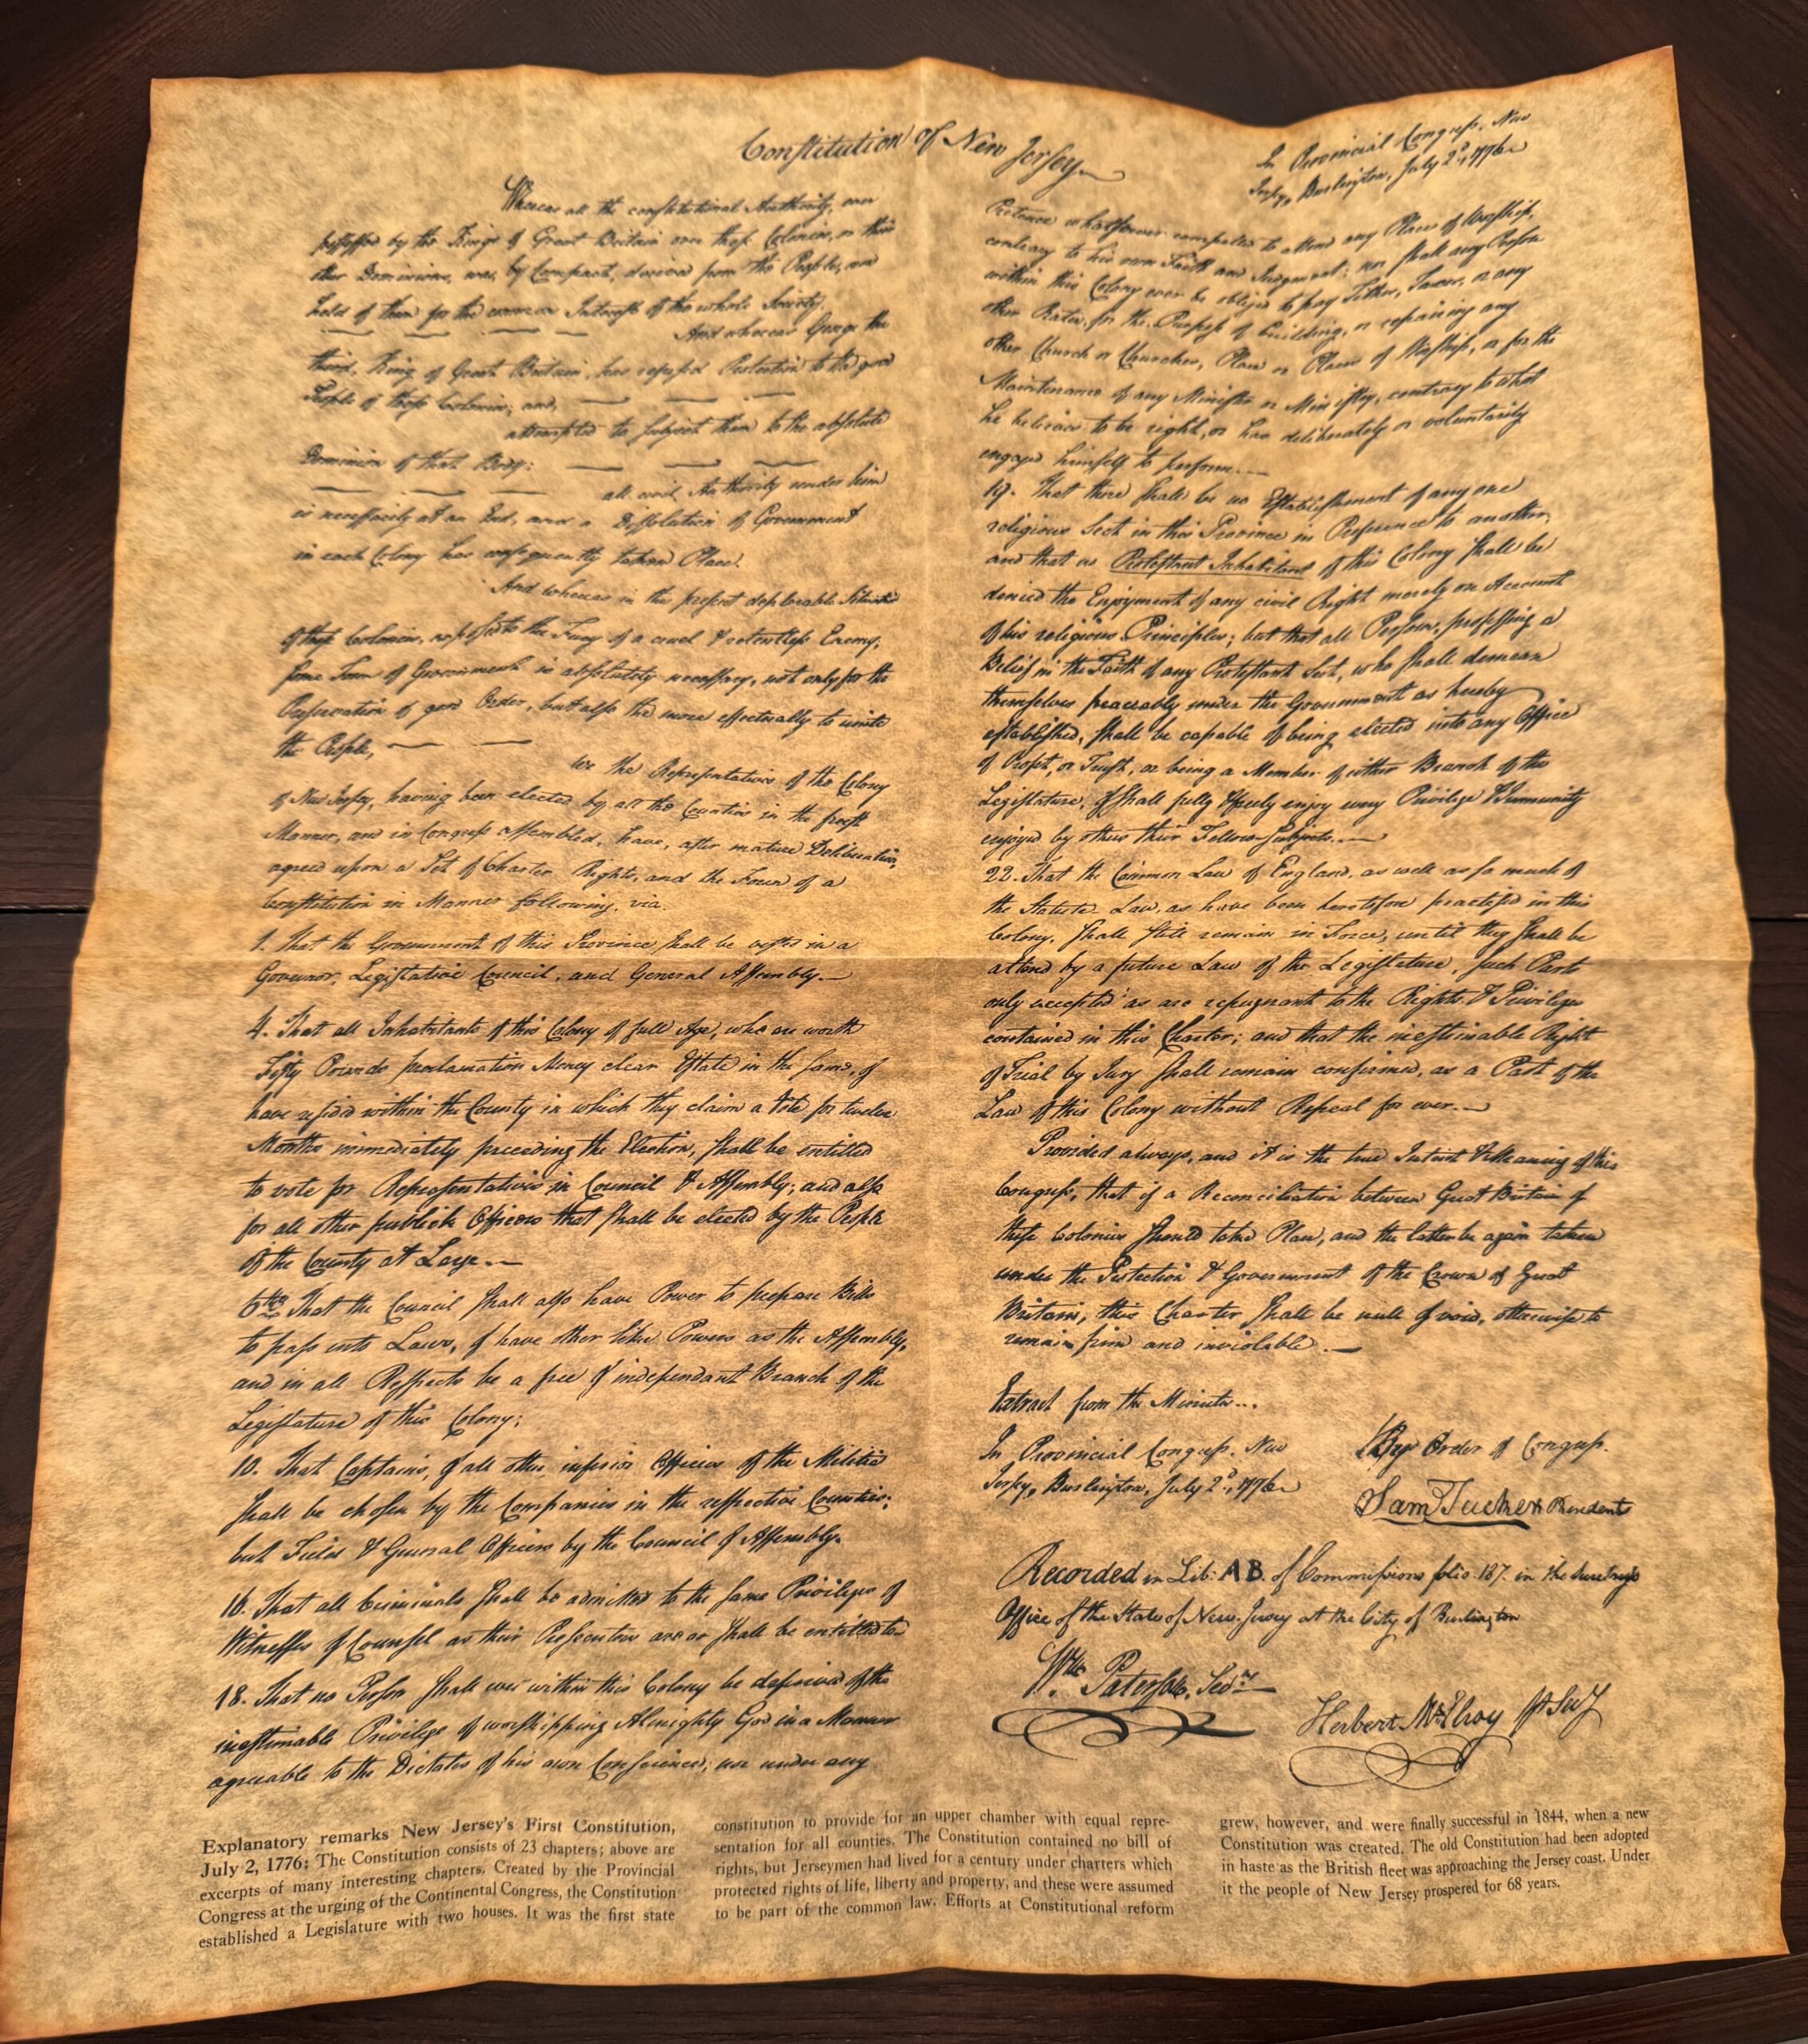 Constitution of New Jersey
In Provincial Congress, New
Jersey, Burlington, July 2d, 1776
Whereas all the constitutional Authority, ever
possessed by the Kings of Great Britain over these Colonies, or their
other Dominions, was, by Compact, derived from the People, and
held of them for the common Interest of the whole Society,
And whereas George the
third, King of Great Britain, has refused Protection to the good
People of these Colonies; and,
attempted to subject them to the absolute
Dominion of that Body;
all civil Authority under him
is necessarily at an End, and a Dissolution of Government
in each Colony has consequently taken Place.
And whereas in the present deplorable Situation
of these Colonies, exposed to the Fury of a cruel & relentless Enemy,
some Form of Government is absolutely necessary, not only for the
Preservation of good Order, but also the more effectually to unite
the People,
we the Representatives of the Colony
of New Jersey, having been elected by all the Counties in the freest
Manner, and in Congress assembled, have, after mature Deliberation,
agreed upon a Set of Charter Rights, and the Form of a
Constitution in Manner following, viz.
1. That the Government of this Province shall be vested in a
Governor, Legislative Council, and General Assembly.
4. That all Inhabitants of this Colony of full Age, who are worth
Fifty Pounds proclamation Money clear Estate in the same, &
have resided within the County in which they claim a Vote for twelve
Months immediately preceeding the Election, shall be entitled
to vote for Representatives in Council & Assembly; and also
for all other publick Officers that shall be elected by the People
of the County at Large.
6th That the Council shall also have Power to prepare Bills
to pass into Laws, & have other like Powers as the Assembly,
and in all Respects be a free & independant Branch of the
Legislature of this Colony;
10. That Captains, & all other inferior Officers of the Militia
shall be chosen by the Companies in the respective Counties;
but Field & General Officers by the Council & Assembly.
16. That all Criminals shall be admitted to the same Privileges of
Witnesses & Counsel as their Prosecutors are or shall be entitled to
18. That no Person shall ever within this Colony be deprived of the
inestimable Privilege of worshipping Almighty God in a Manner
agreeable to the Dictates of his own Conscience; nor under any
Pretence whatsoever compelled to attend any Place of Worship,
contrary to his own Faith and Judgment; nor shall any Person
within this Colony ever be obliged to pay Tithes, Taxes, or any
other Rates, for the Purpose of building, or repairing any
other Church or Churches, Place or Places of Worship, or for the
Maintenance of any Minister or Ministry, contrary to what
he believes to be right, or has deliberately or voluntarily
engaged himself to perform.
19. That there shall be no Establishment of any one
religious Sect in this Province in Preference to another;
and that no Protestant Inhabitant of this Colony shall be
denied the Enjoyment of any civil Right merely on Account
of his religious Principles; but that all Persons, professing a
Belief in the Faith of any Protestant Sect, who shall demean
themselves peaceably under the Government as hereby
established, shall be capable of being elected into any Office
of Profit, or Trust, or being a Member of either Branch of the
Legislature, & shall fully & freely enjoy every Privilege & Immunity
enjoyed by others their Fellow-Subjects.
22. That the Common Law of England, as well as so much of
the Statute Law, as have been heretofore practised in this
Colony, shall still remain in Force, until they shall be
altered by a future Law of the Legislature, such Parts
only excepted as are repugnant to the Rights & Privileges
contained in this Charter; and that the inestimable Right
of Trial by Jury shall remain confirmed, as a Part of the
Law of this Colony without Repeal for ever.
Provided always, and it is the true Intent & Meaning of this
Congress, that if a Reconciliation between Great Britain &
these Colonies should take Place, and the latter be again taken
under the Protection & Government of the Crown of Great
Britain, this Charter shall be null & void, otherwise to
remain firm and inviolable.
Extract from the Minutes...
In Provincial Congress, New
Jersey, Burlington, July 2d, 1776
By Order of Congress.
Sam Tucker President
Recorded in Lib: AB. of Commissions folio 187. in the
Office of the State of New-Jersey at the City of Burlington
Wm. Paterson, Secry
Herbert McElroy
Explanatory remarks New Jersey's First Constitution,
July 2, 1776: The Constitution consists of 23 chapters; above are
excerpts of many interesting chapters. Created by the Provincial
Congress at the urging of the Continental Congress, the Constitution
established a Legislature with two houses. It was the first state
constitution to provide for an upper chamber with equal repre-
sentation for all counties. The Constitution contained no bill of
rights, but Jerseymen had lived for a century under charters which
protected rights of life, liberty and property, and these were assumed
to be part of the common law. Efforts at Constitutional reform
grew, however, and were finally successful in 1844, when a new
Constitution was created. The old Constitution had been adopted
in haste as the British fleet was approaching the Jersey coast. Under
it the people of New Jersey prospered for 68 years.